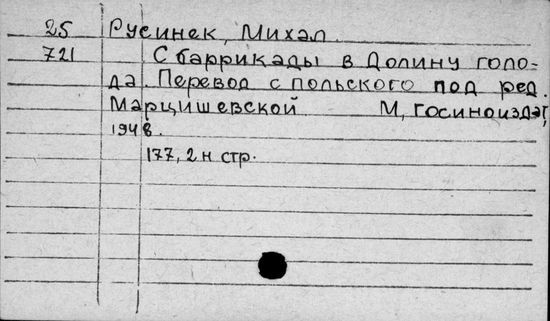 25 Русинек, Михал.
721 С баррикады в Долину голо-
да. Перевод с польского под ред.
Марцишевской М, Госиноиздат,
1948.
177, 2 н стр.